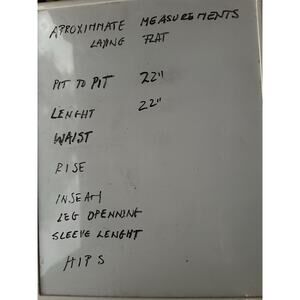 APROXIMMATE MEASUREMENTS
LAYING FLAT
PIT TO PIT 22"
LENGHT 22"
WAIST
RISE
INSEAM
LEG OPENNING
SLEEVE LENGHT
HIPS